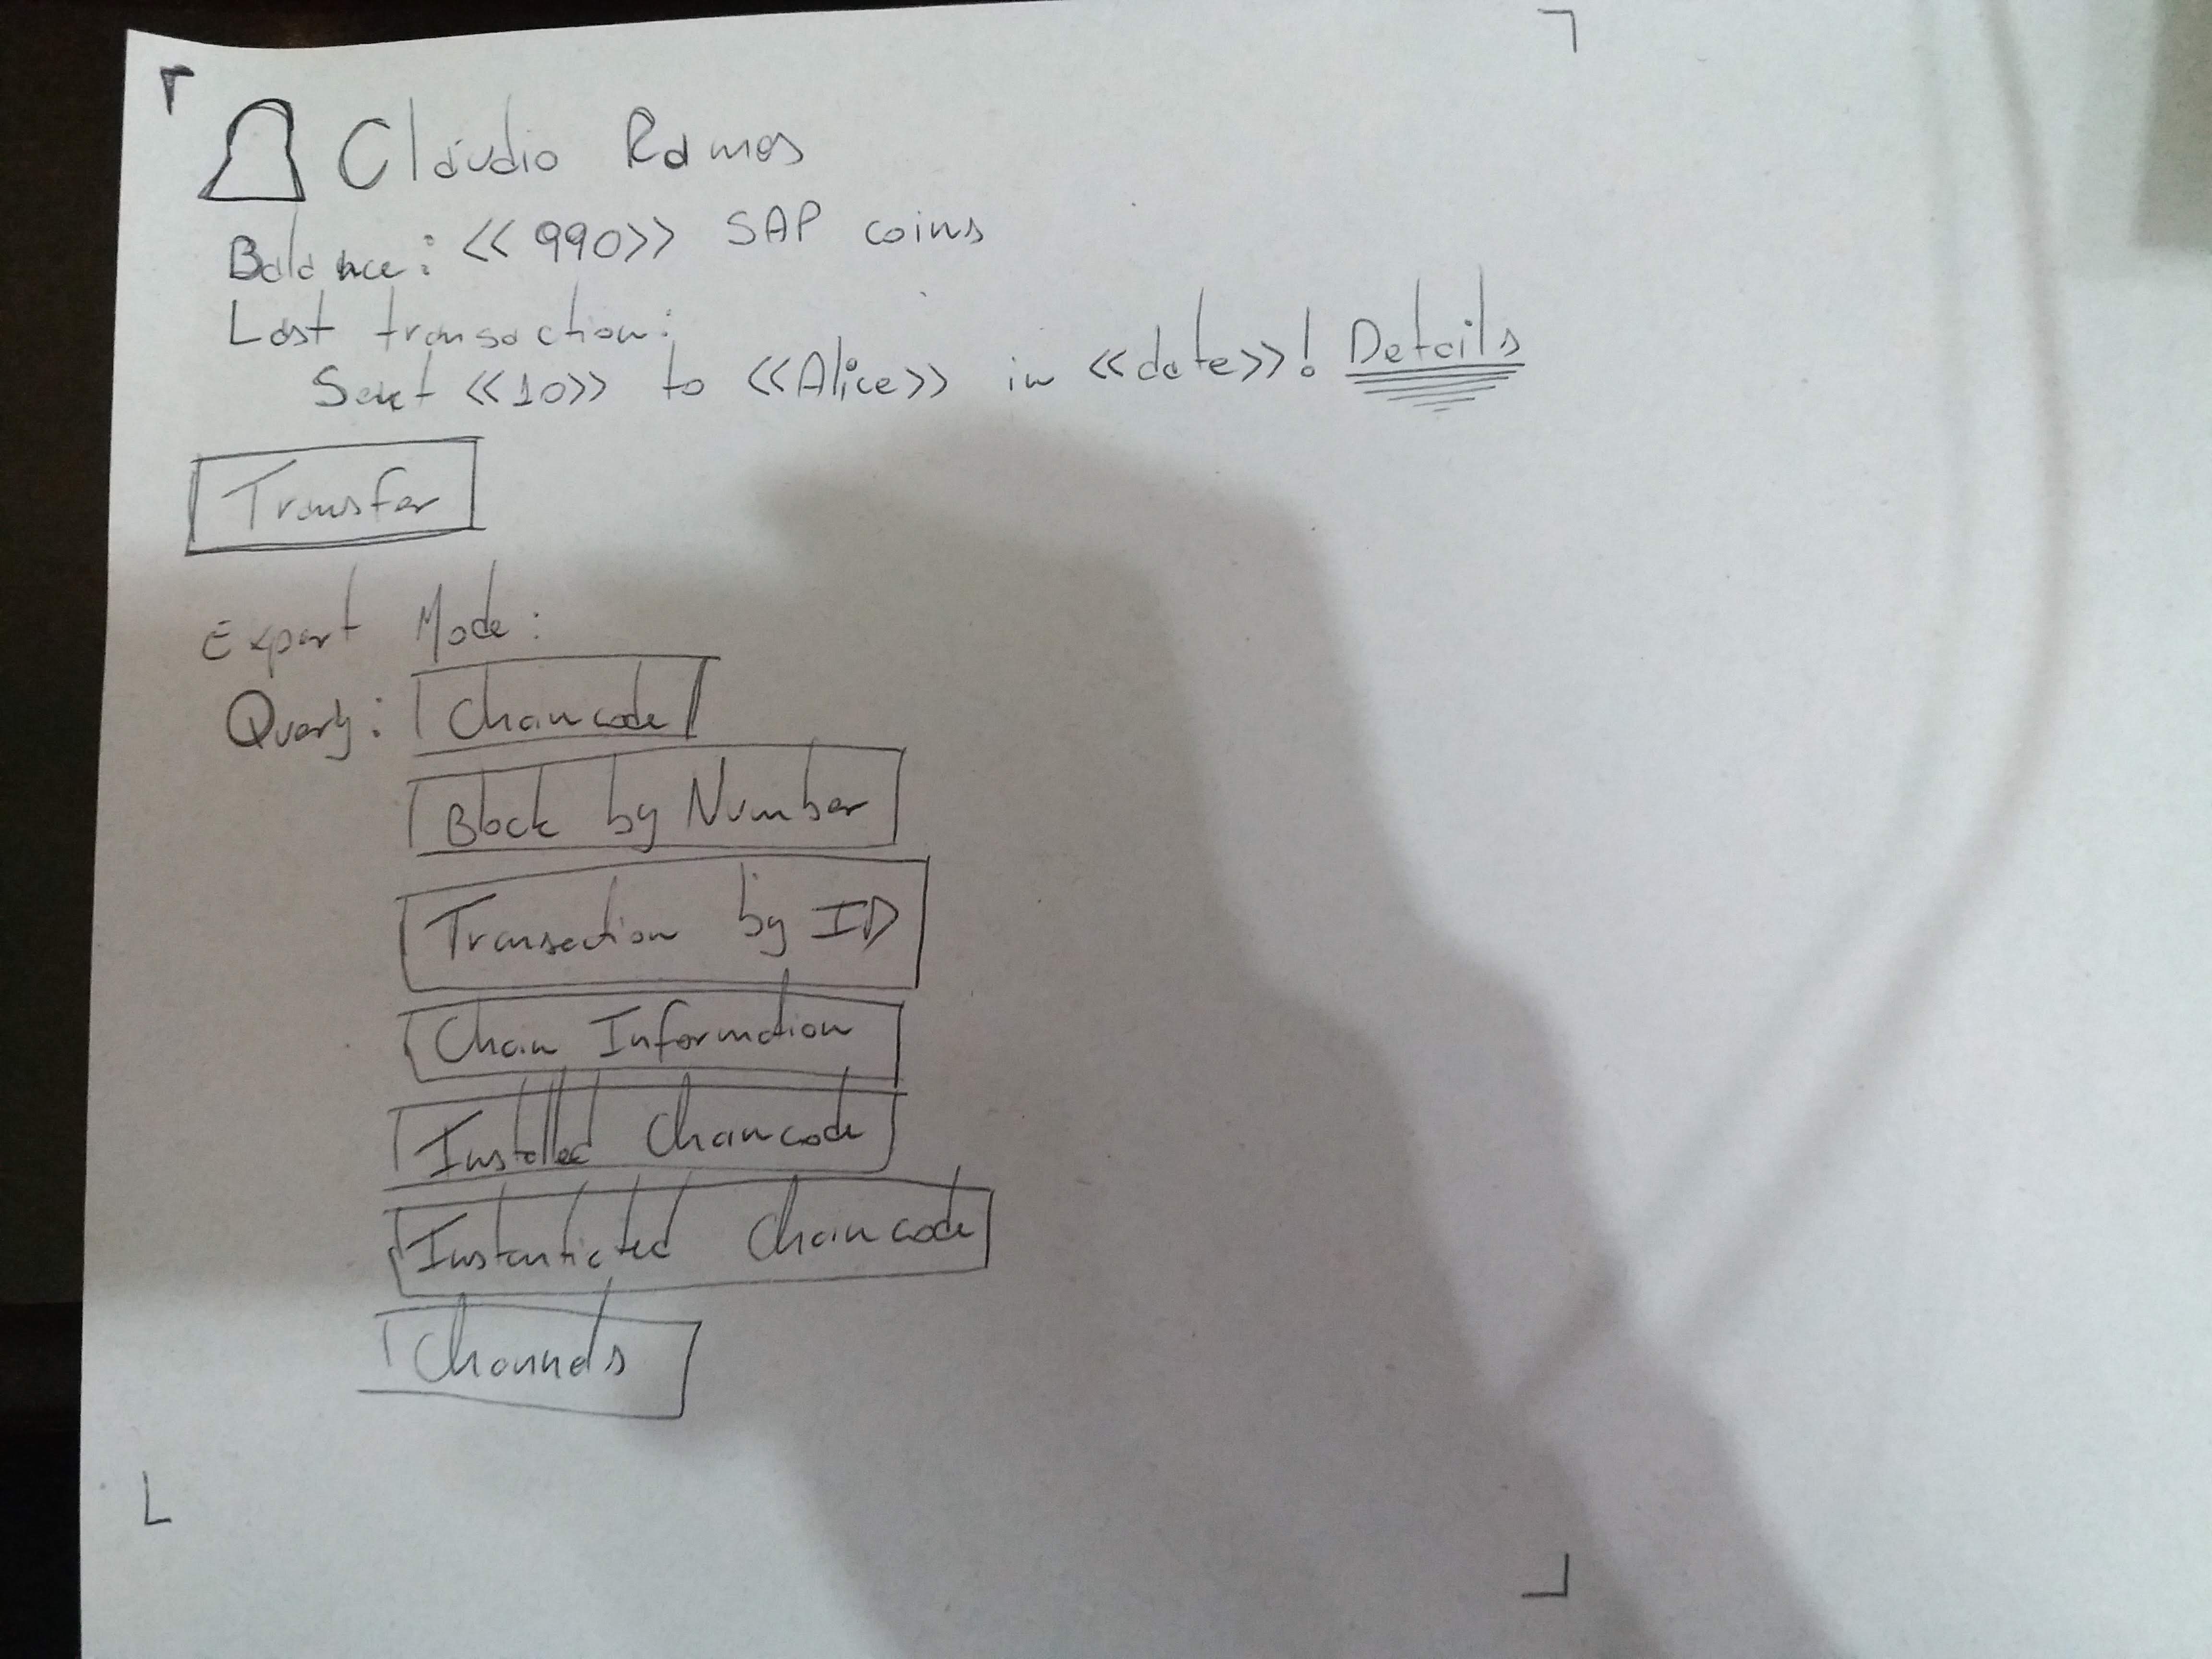 Cláudio Ramos
Balance: <<990>> SAP coins
Last transaction:
Sent <<10>> to <<Alice>> in <<date>>! Details
Transfer
Expert Mode:
Query: Chaincode
Block by Number
Transaction by ID
Chain Information
Installed Chaincode
Instantiated Chaincode
Channels